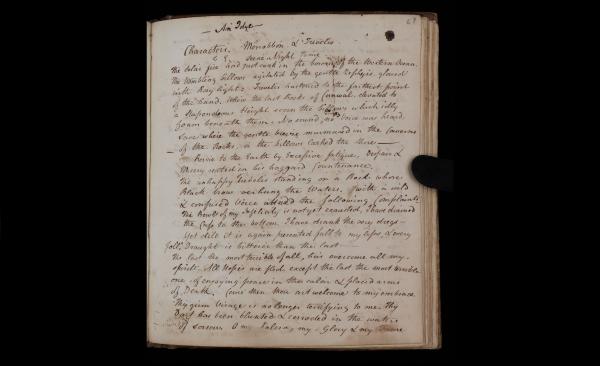 An Idyl
61
Characters. Monabbon & Fidelio
Scene Night Time
The Solar fire had just sunk in the bosom of the Western Ocean.
The trembling billows agitated by the gentle Zephyrs, glared
with Ray lights. Fidelio hastened to the farthest point
of the Land. Where the last Rocks of elevated to
a stupendous height scorn the billows which idly
foam beneath them. No sound, no voice was heard
Save where the gentle breeze murmured in the Caverns
of the Rocks, or the billows lashed the shore—
Borne to the Earth by Excessive fatigue, Despair &
Misery rested in his haggard Countenance.
The unhappy Fidelio standing on a Rock whose
Black brow o'erhung the Waters, with a wild
& confused Voice utter'd the following Complaints
The Bowl of my Infelicity is not yet exhausted, I have drained
the Cup to the bottom. I have drank the very dregs—
Yet still it is again presented full to my lips, & every
full Draught is bitterer than the last—
The last the most terrible of all, has overcome all my
spirits. All Hopes are fled except the last the most terrible
one of enjoying peace in the calm & placid arms
of Death. Come then thou art welcome to my embrace
Thy grim Visage is no longer terrifying to me. Thy
Dart has been blunted & corroded in the waters
of sorrow. O my Valeria, my Glory & my